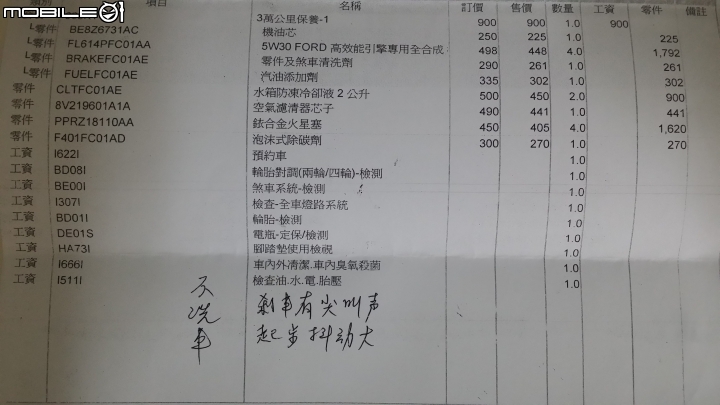 MOBILE01
類別 項目 名稱 訂價 售價 數量 工資 零件 備註
3萬公里保養-1 900 900 1.0 900
└零件 BE8Z6731AC 機油芯 250 225 1.0 225
└零件 FL614PFC01AA 5W30 FORD 高效能引擎專用全合成 498 448 4.0 1,792
└零件 BRAKEFC01AE 零件及煞車清洗劑 290 261 1.0 261
└零件 FUELFC01AE 汽油添加劑 335 302 1.0 302
零件 CLTFC01AE 水箱防凍冷卻液 2 公升 500 450 2.0 900
零件 8V219601A1A 空氣濾清器芯子 490 441 1.0 441
零件 PPRZ18110AA 銥合金火星塞 450 405 4.0 1,620
零件 F401FC01AD 泡沫式除碳劑 300 270 1.0 270
工資 I622I 預約車 1.0
工資 BD08I 輪胎對調(兩輪/四輪)-檢測 1.0
工資 BE00I 煞車系統-檢測 1.0
工資 I307I 檢查-全車燈路系統 1.0
工資 BD01I 輪胎-檢測 1.0
工資 DE01S 電瓶-定保/檢測 1.0
工資 HA73I 腳踏墊使用檢視 1.0
工資 I666I 車內外清潔.車內臭氧殺菌 1.0
工資 I511I 檢查油.水.電.胎壓 1.0
不洗車
剎車有尖叫声
起步抖动大